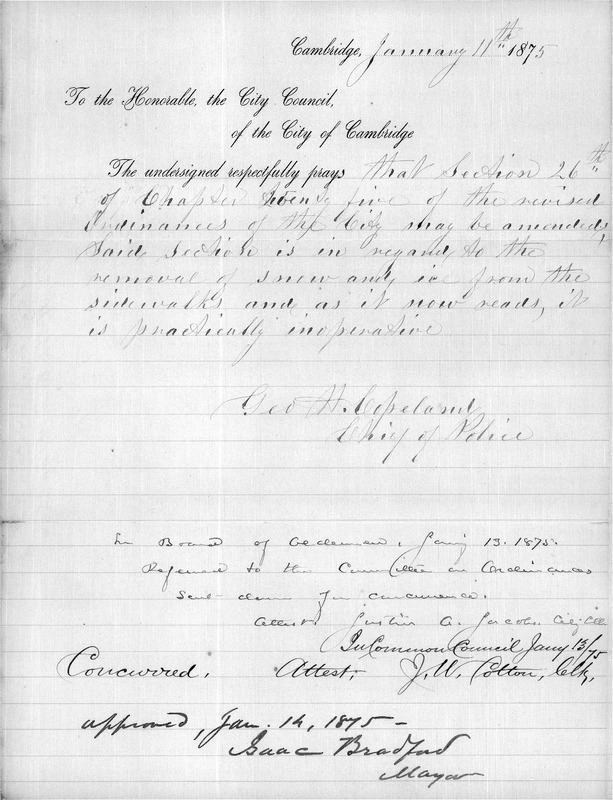 Cambridge, January 11th 1875
To the Honorable, the City Council,
of the City of Cambridge
The undersigned respectfully prays that Section 26th
of Chapter twenty five of the revised
Ordinances of the City may be amended,
Said Section is in regard to the
removal of snow and ice from the
sidewalks and as it now reads, it
is practically inoperative
Geo H. Copeland
Chief of Police
In Board of Aldermen, Jany 13. 1875.
Referred to the Committee on Ordinances
Sent down for concurrence.
Attest. Justin A. Jacobs. City Clk
In Common Council Jany 13/75
Concurred. Attest, J. W. Cotton, Clk,
approved, Jan. 14, 1875 -
Isaac Bradford
Mayor